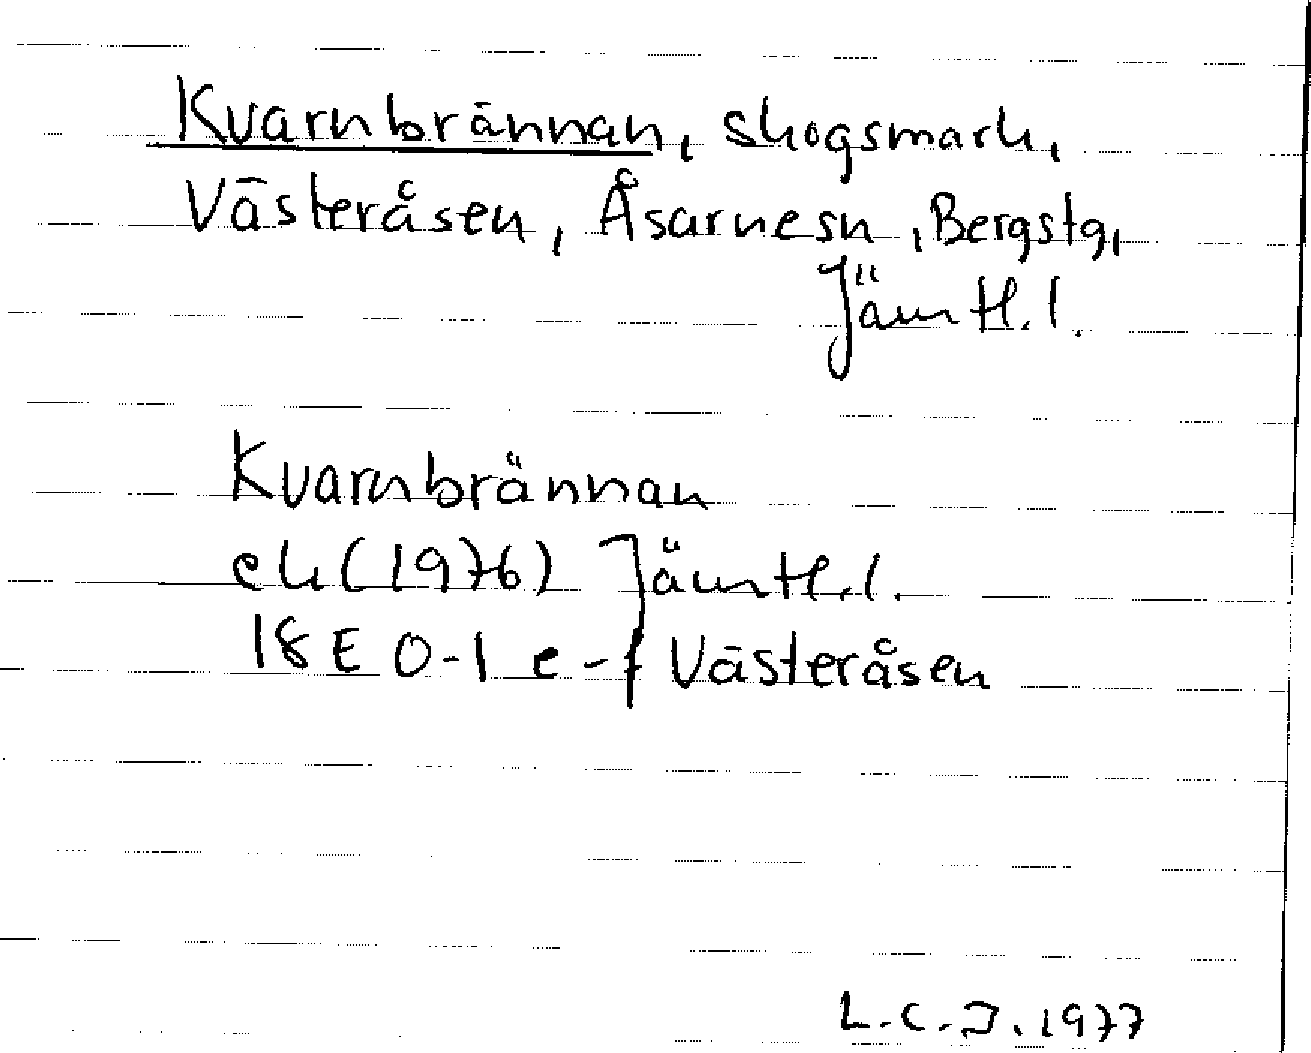 Kvarnbrännan, skogsmark,
Västeråsen, Åsarnesn, Bergstg,
Jämtl.l.
Kvarnbrännan
ek (1976) Jämtl.l.
18E 0-1 e-f Västeråsen
L.C.J. 1977